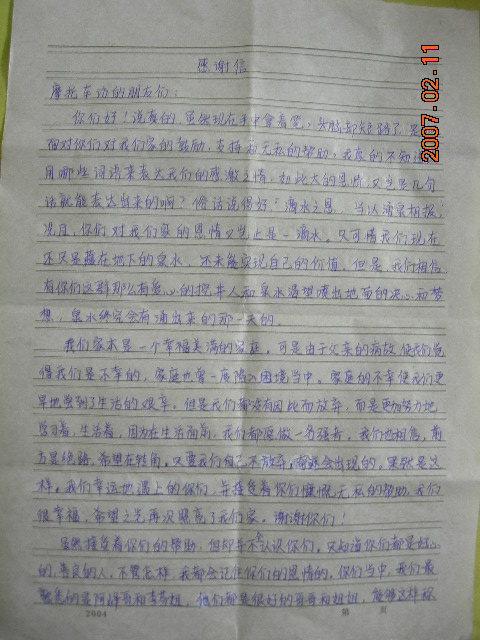 感谢信
摩托车坊的朋友们:
你们好!说真的,虽然现在手中拿着笔,头脑却短路了,是
面对你们对我们家的鼓励,支持和无私的帮助,我真的不知道
用哪些词语来表达我们的感激之情,如此大的恩情,又岂是几句
话就能表达出来的啊?俗话说得好"滴水之恩,当以涌泉相报",
况且,你们对我们家的恩情又岂止是一滴水。只可惜我们现在
还只是藏在地下的泉水,还未能实现自己的价值,但是,我们相信
有你们这群那么有爱心的挖井人和泉水渴望喷出地面的决心和梦
想,泉水终究会有涌出来的那一天的。
我们家本是一个幸福美满的家庭,可是由于父亲的病故,使我们觉
得我们是不幸的,家庭也曾一度陷入困境当中。家庭的不幸使我们更
早地尝到了生活的艰辛。但是我们都没有因此而放弃,而是更加努力地
学习着,生活着,因为在生活面前,我们都愿做一名强者。我们也相信,前
方是绝路,希望在转角。只要我们自己不放弃,奇迹会出现的。果然是这
样,我们幸运地遇上的你们,并接受着你们慷慨无私的帮助,我们
很幸福,希望之光再次照亮了我们家。谢谢你们!
虽然接受着你们的帮助,但却并不全认识你们。只知道你们都是好心
的,善良的人,不管怎样,我都会记住你们的恩情的。你们当中,我们最
熟悉的是阿峰哥和 姐,他们都是很好的哥哥和姐姐,能够这样称
2004
第 页
2007.02.11